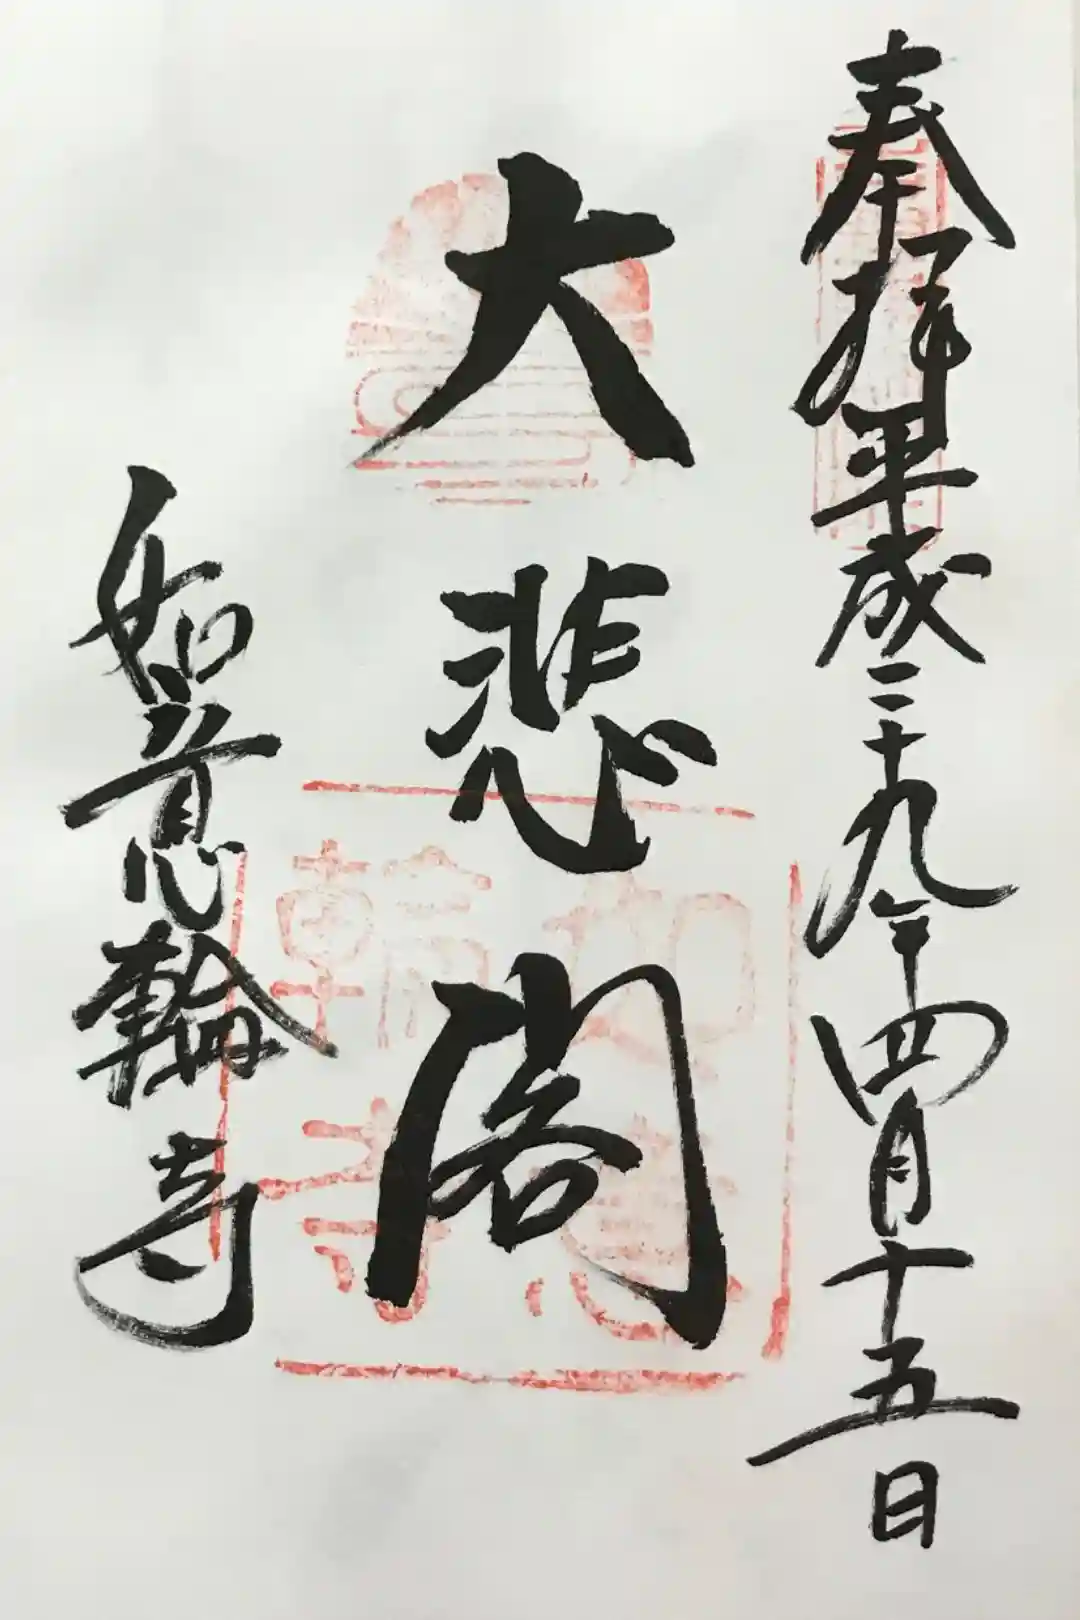 奉拝 平成二十九年四月十五日
大悲閣
如意輪寺
如意輪寺